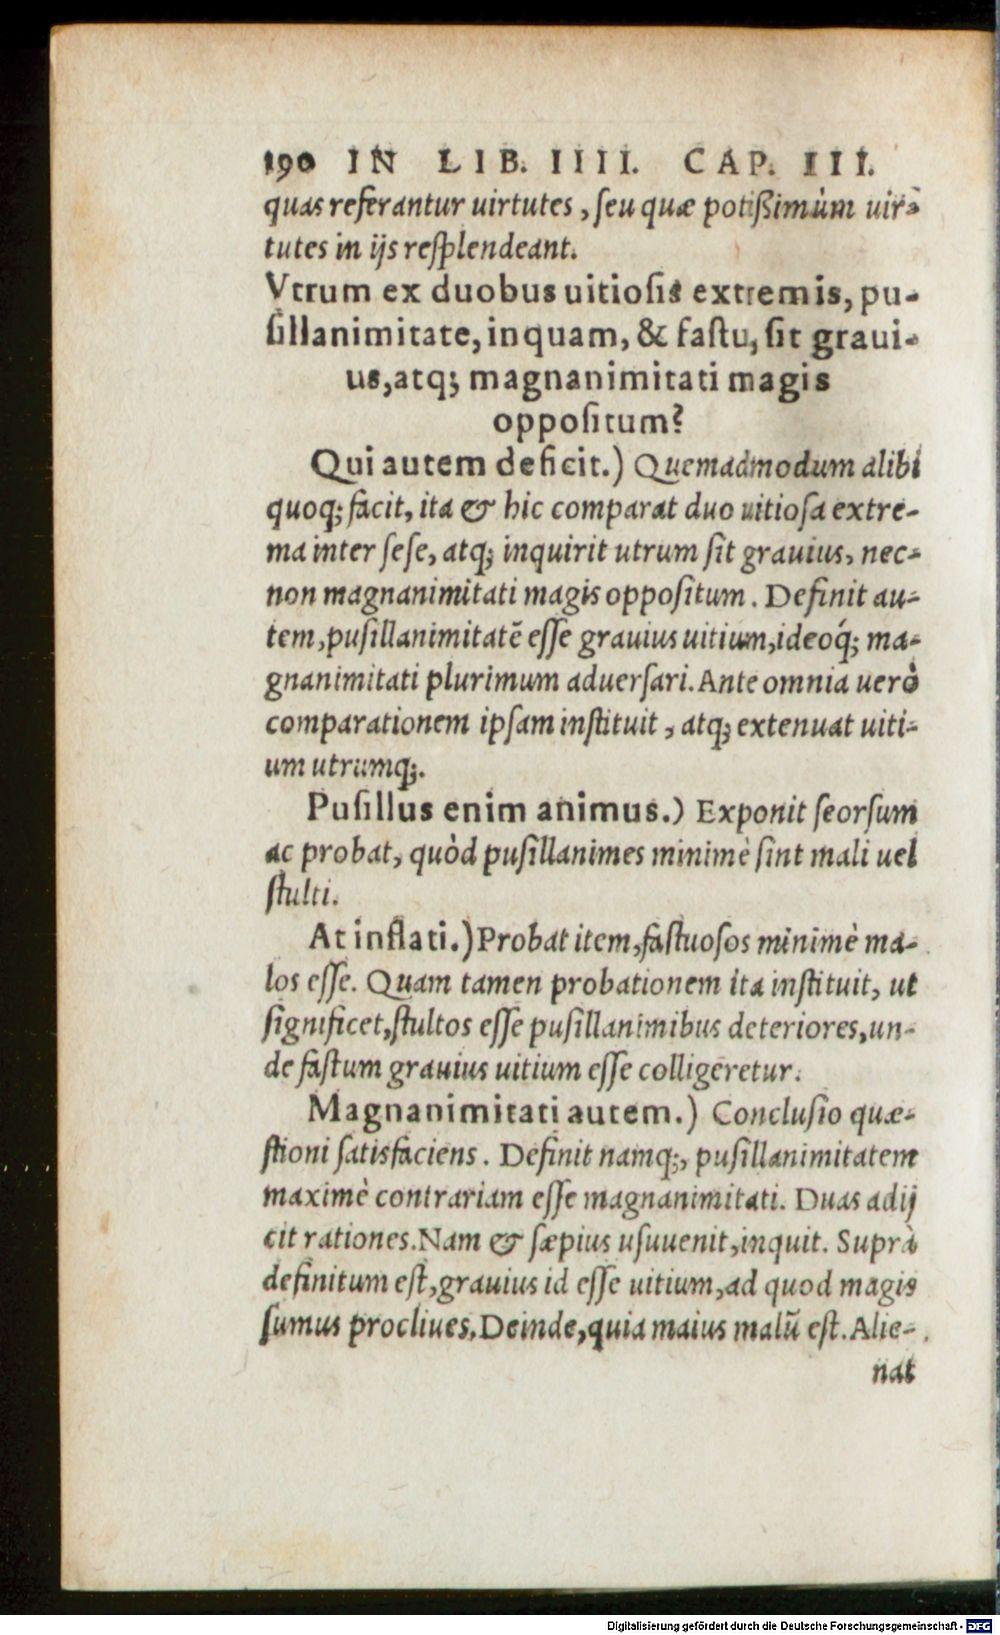 190 IN LIB. IIII. CAP. III.
quas referantur uirtutes, ſeu quæ potiſsimùm uir-
tutes in ijs reſplendeant.
Vtrum ex duobus uitioſis extremis, pu-
ſillanimitate, inquam, & faſtu, ſit graui-
us, atq; magnanimitati magis
oppoſitum?
Qui autem deficit.) Quemadmodum alibi
quoq; facit, ita & hic comparat duo uitioſa extre-
ma inter ſeſe, atq; inquirit utrum ſit grauius, nec-
non magnanimitati magis oppoſitum. Definit au-
tem, puſillanimitatē eſſe grauius uitium, ideoq́; ma-
gnanimitati plurimum aduerſari. Ante omnia uerò
comparationem ipſam inſtituit, atq; extenuat uiti-
um utrumq;.
Puſillus enim animus.) Exponit ſeorſum
ac probat, quòd puſillanimes minimè ſint mali uel
ſtulti.
At inflati.) Probat item, faſtuoſos minimè ma-
los eſſe. Quam tamen probationem ita inſtituit, ut
ſignificet, ſtultos eſſe puſillanimibus deteriores, un-
de faſtum grauius uitium eſſe colligeretur.
Magnanimitati autem.) Concluſio quæ-
ſtioni ſatisfaciens. Definit namq;, puſillanimitatem
maximè contrariam eſſe magnanimitati. Duas adij
cit rationes. Nam & ſæpius uſuuenit, inquit. Suprà
definitum eſt, grauius id eſſe uitium, ad quod magis
ſumus procliues. Deinde, quia maius malū eſt. Alie-
nat
Digitalisierung gefördert durch die Deutsche Forschungsgemeinschaft - DFG